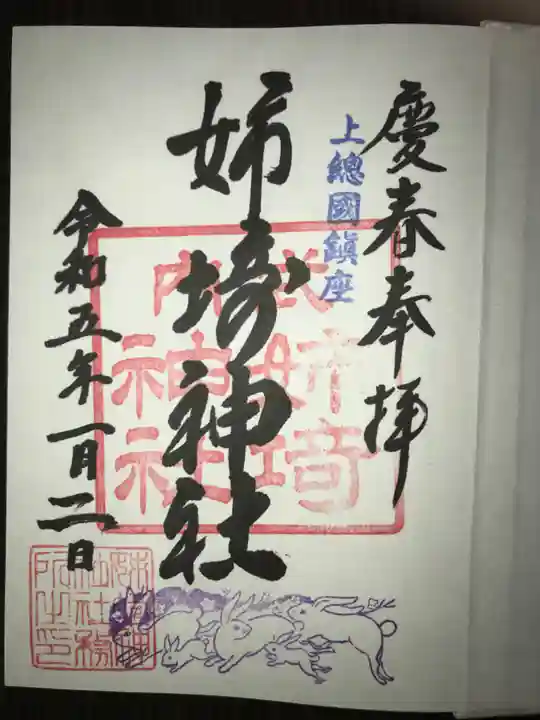 慶春奉拝
上總國鎮座
姉埼神社
式内
姉埼
神社
令和五年一月二日